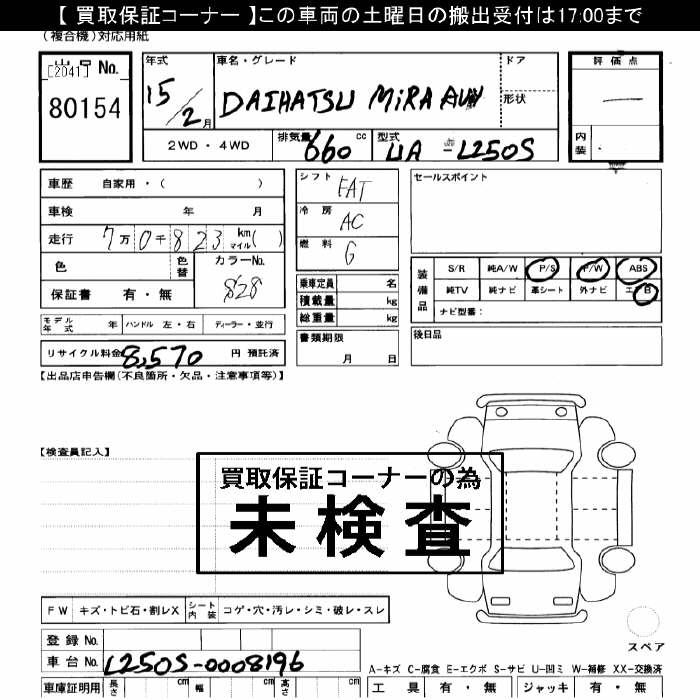 【 買取保証コーナー 】この車両の土曜日の搬出受付は17:00まで
(複合機)対応用紙
[2041] No.
80154
年式 車名・グレード ドア 評価点
15/2月 DAIHATSU MiRA 形状
2WD ・ 4WD 排気量 660 cc 型式 UA -L250S 内装
車歴 自家用・( )
車検 年 月
走行 7万0千823 km マイル( )
色 色替 カラーNo. S28
保証書 有・無
シフト FAT
冷房 AC
燃料 G
乗車定員 名
積載量 kg
総重量 kg
書類期限 月 日
セールスポイント
装備品 S/R 純A/W P/S P/W ABS
純TV 純ナビ 革シート 外ナビ エアB
ナビ型番:
後日品
モデル年式 年 ハンドル 左・右 ディーラー・並行
リサイクル料金 8,570 円 預託済
【出品店申告欄(不良箇所・欠品・注意事項等)】
【検査員記入】
買取保証コーナーの為
未検査
FW キズ・トビ石・割レX シート内装 コゲ・穴・汚レ・シミ・破レ・スレ
スペア
登録No.
車台No. L250S-0008196
A-キズ C-腐食 E-エクボ S-サビ U-凹ミ W-補修 XX-交換済
車庫証明用 長さ cm 幅 cm 高さ cm
工具 有・無 ジャッキ 有・無